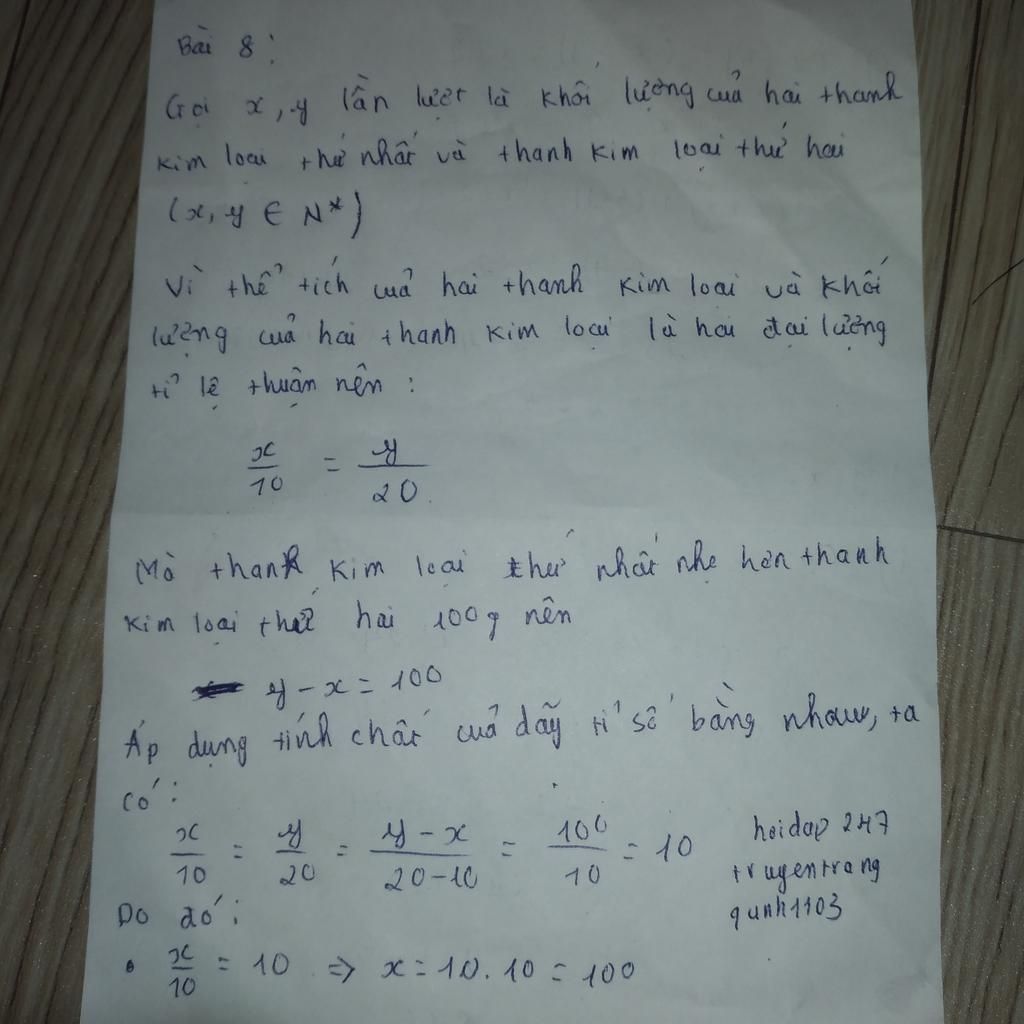 Bài 8:
Gọi x, y lần lượt là khối lượng của hai thanh
kim loại thứ nhất và thanh kim loại thứ hai
(x, y ∈ N*)
Vì thể tích của hai thanh kim loại và khối
lượng của hai thanh kim loại là hai đại lượng
tỉ lệ thuận nên:
x/10 = y/20
Mà thanh kim loại thứ nhất nhẹ hơn thanh
kim loại thứ hai 100g nên
y - x = 100
Áp dụng tính chất của dãy tỉ số bằng nhau, ta
có:
x/10 = y/20 = y-x/20-10 = 100/10 = 10
hoidap 247
truyentrang
qunh1103
Do đó:
• x/10 = 10 => x = 10.10 = 100